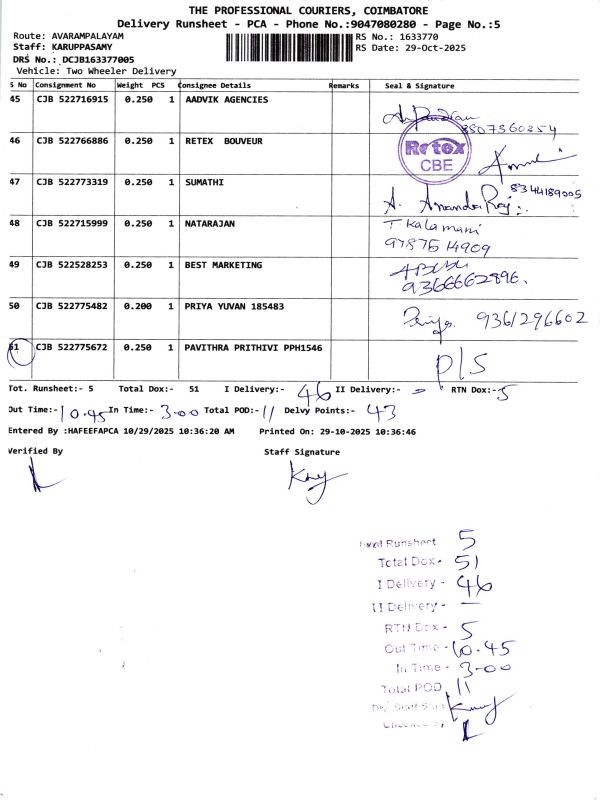 THE PROFESSIONAL COURIERS, COIMBATORE
Delivery Runsheet - PCA - Phone No.:9047080280 - Page No.:5
Route: AVARAMPALAYAM RS No.: 1633770
Staff: KARUPPASAMY RS Date: 29-Oct-2025
DRS No.: DCJB163377005
Vehicle: Two Wheeler Delivery
S No Consignment No Weight PCS Consignee Details Remarks Seal & Signature
45 CJB 522716915 0.250 1 AADVIK AGENCIES
46 CJB 522766886 0.250 1 RETEX BOUVEUR Retex CBE
47 CJB 522773319 0.250 1 SUMATHI 8344189005
A. Ananda Raj
48 CJB 522715999 0.250 1 NATARAJAN T Kalamani
9787514909
49 CJB 522528253 0.250 1 BEST MARKETING
9366662896.
50 CJB 522775482 0.200 1 PRIYA YUVAN 185483 Priya 9361296602
51 CJB 522775672 0.250 1 PAVITHRA PRITHIVI PPH1546 P/S
Tot. Runsheet:- 5 Total Dox:- 51 I Delivery:- 46 II Delivery:- - RTN Dox:- 5
Out Time:- 10.45 In Time:- 3-00 Total POD:- 11 Delvy Points:- 43
Entered By :HAFEEFAPCA 10/29/2025 10:36:20 AM Printed On: 29-10-2025 10:36:46
Verified By Staff Signature
Total Runsheet 5
Total Dox - 51
I Delivery - 46
II Delivery - —
RTN Dox - 5
Out Time - 10.45
In Time - 3-00
Total POD 11